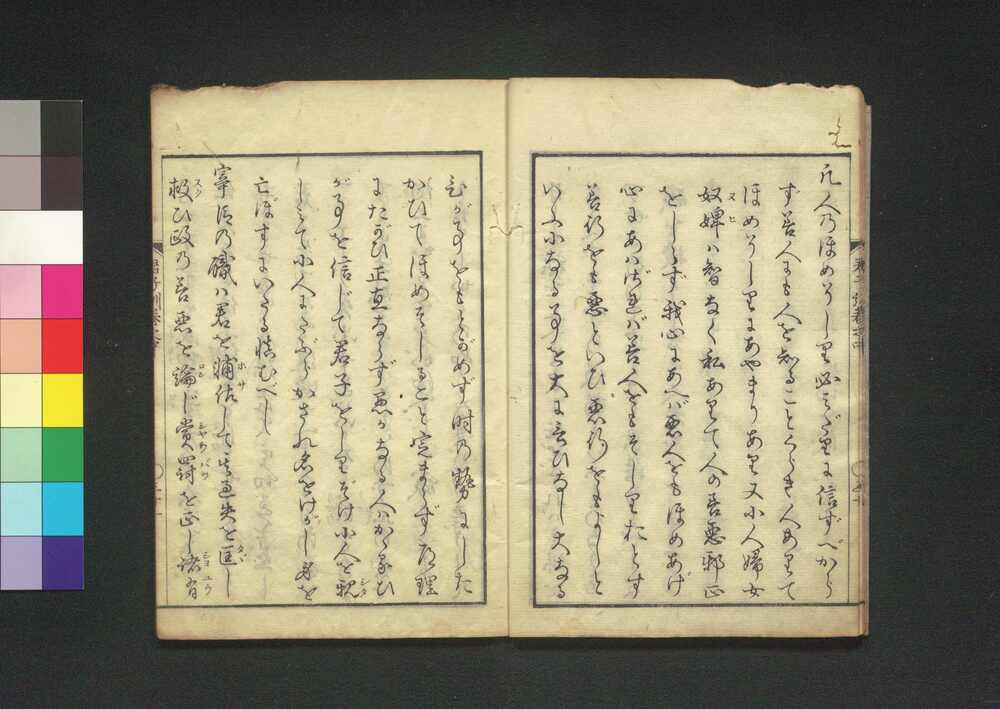 凡人のほめそしり必みだりに信ずべから
ず善人にも人を知ることくらき人ありて
ほめそしりにあやまりあり又小人婦女
奴婢ハ智なく私ありて人の善悪邪正
をしらず我心にあへバ悪人をもほめあげ
心にあハざれバ善人をもそしりおとす
善行をも悪といひ悪行をもよしと
いふ小なる事を大に云ひなし大なる
ひが事をもとがめず時の勢にした
がひてほめそしること定まらず道理
にたがひ正直ならず愚かなる人ハかくる
が事を信じて君子をしりぞけ小人を親
しミて小人にたぶらかされ名をけがし身を
亡ぼすにいたる慎むべし
宰臣の職ハ君を輔佐して其過失を匡し
救ひ政の善悪を論じ賞罰を正し諸有